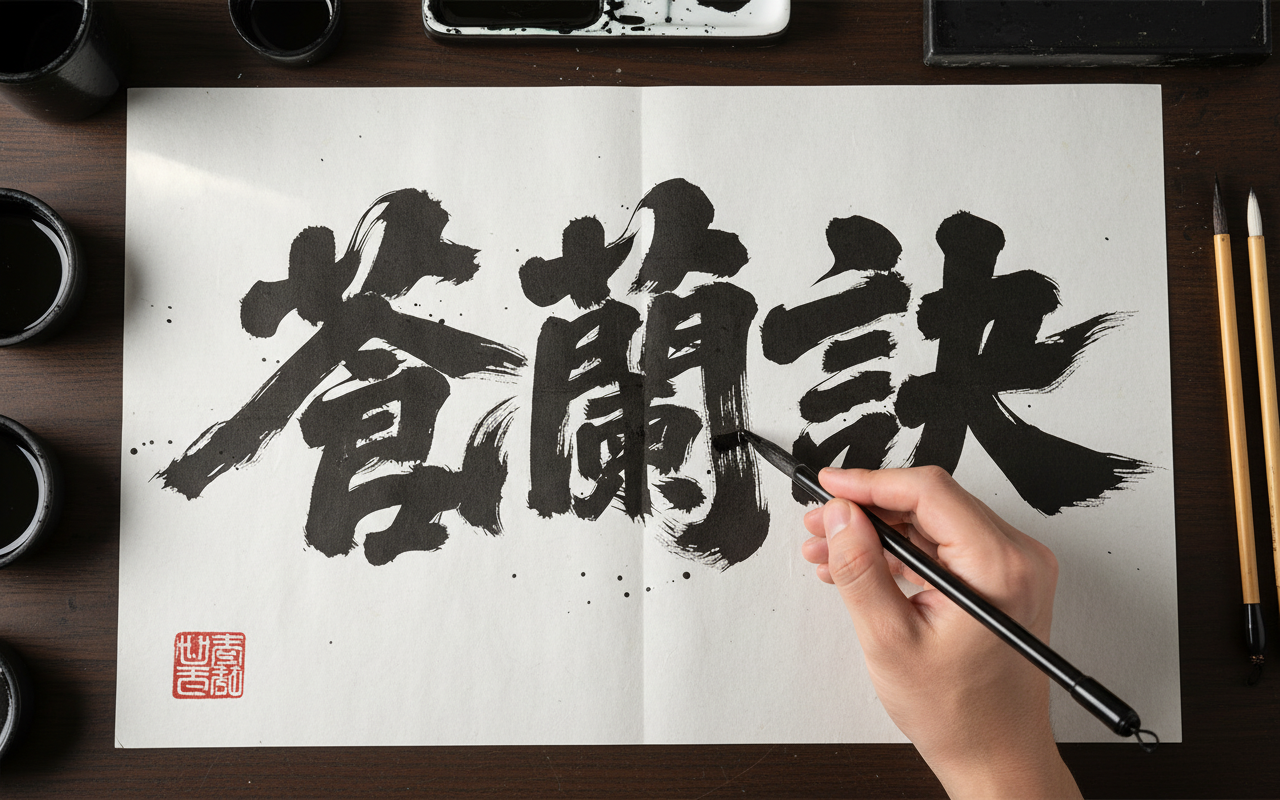 蒼蘭訣